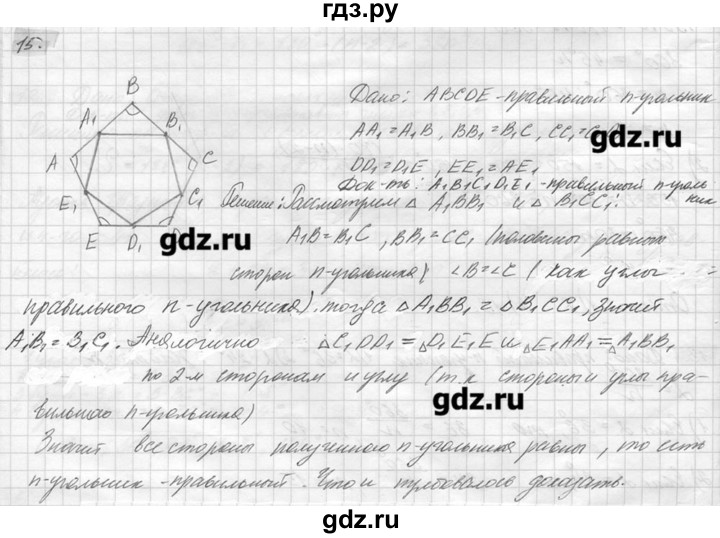 гдз.ру
15.
B
A₁
B₁
A
C
E₁
C₁
E
D₁
Дано: ABCDE - правильный n-угольник
AA₁ = A₁B, BB₁ = B₁C, CC₁ =
gdz.ru
DD₁ = D₁E, EE₁ = AE₁
Док-ть: A₁B₁C₁D₁E₁ - правильный n-уголь
ник
Решение: Рассмотрим △ A₁BB₁ и △ B₁CC₁:
gdz.ru
A₁B = B₁C, BB₁ = CC₁ (половины равных
сторон n-угольника), ∠B = ∠C (как углы
правильного n-угольника). тогда △A₁BB₁ = △B₁CC₁, значит
A₁B₁ = B₁C₁. Аналогично △C₁DD₁ = △D₁E₁E и △E₁AA₁ = △A₁BB₁
по 2-м сторонам и углу (т.к стороны и углы пра-
gdz.ru
вильного n-угольника)
Значит все стороны полученного n-угольника равны, то есть
n-угольник - правильный. Что и требовалось доказать.
gdz.ru